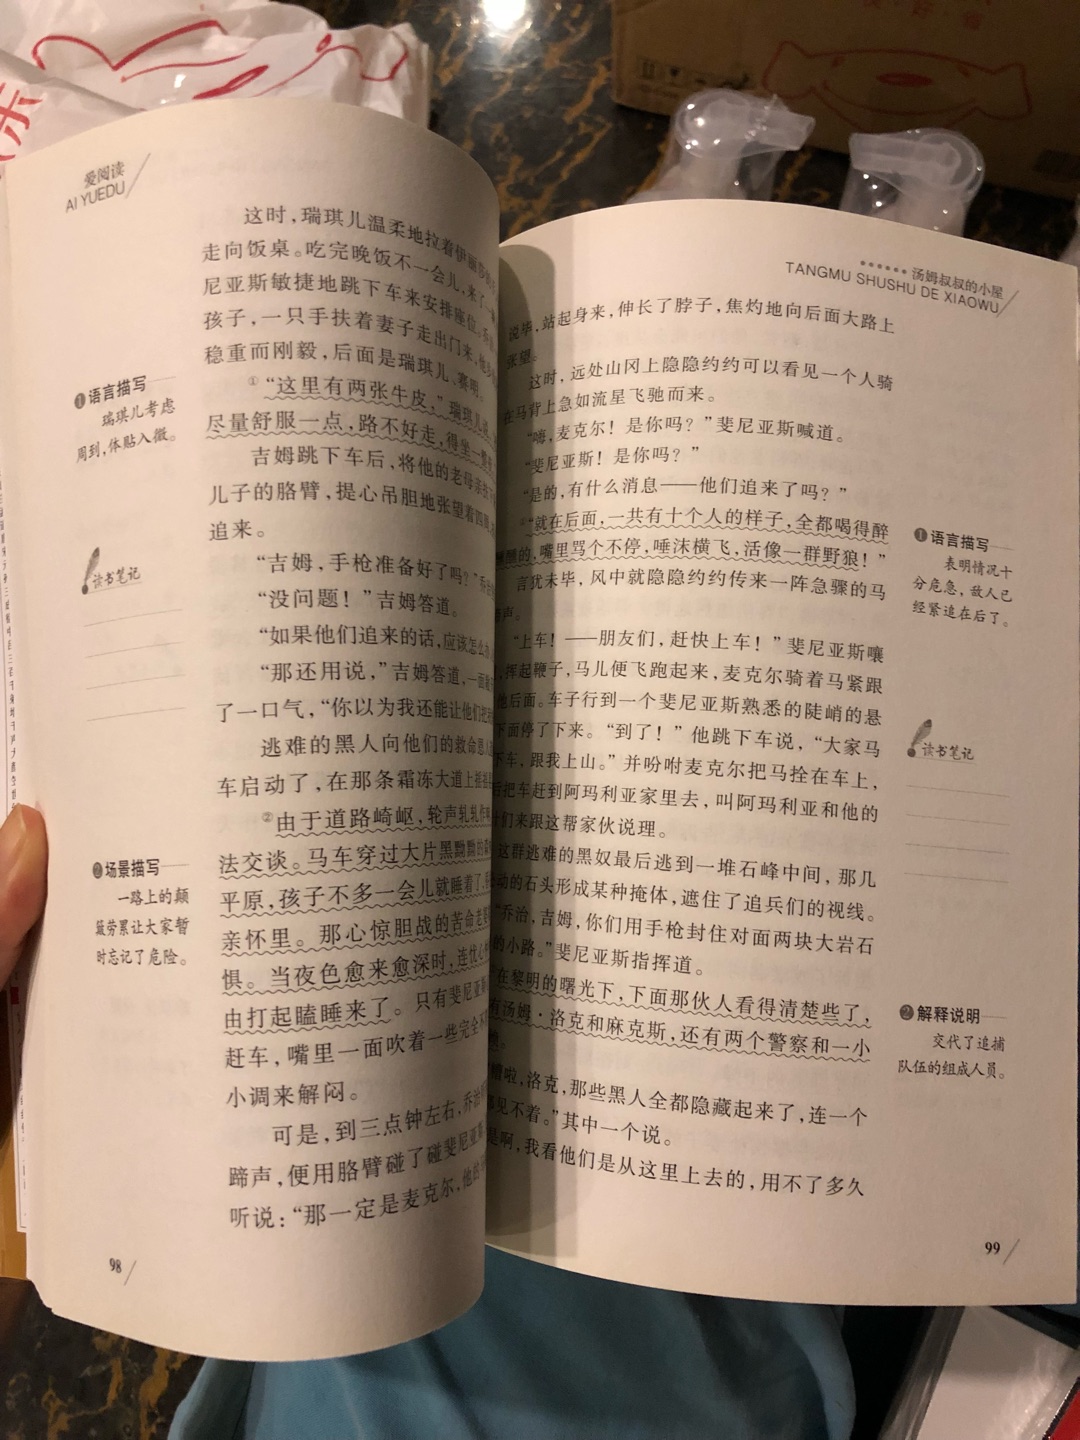 爱阅读
AI YUEDU
这时，瑞琪儿温柔地拉着伊丽莎
走向饭桌。吃完晚饭不一会儿，来了一
尼亚斯敏捷地跳下车来安排座位。乔
孩子，一只手扶着妻子走出门来，他
稳重而刚毅，后面是瑞琪儿、赛明。
①“这里有两张牛皮，”瑞琪儿说，
尽量舒服一点，路不好走，得坐一
吉姆跳下车后，将他的老母亲扶
儿子的胳臂，提心吊胆地张望着四周，
追来。
“吉姆，手枪准备好了吗？”乔治
“没问题！”吉姆答道。
“如果他们追来的话，应该怎么
“那还用说，”吉姆答道，一面
了一口气，“你以为我还能让他们把
逃难的黑人向他们的救命恩人
车启动了，在那条霜冻大道上摇摇
②由于道路崎岖，轮声轧轧作响
法交谈。马车穿过大片黑黝黝的森
平原，孩子不多一会儿就睡着了，
亲怀里。那心惊胆战的苦命老婆
惧。当夜色愈来愈深时，连忧心
由打起瞌睡来了。只有斐尼亚斯
赶车，嘴里一面吹着一些完全不
小调来解闷。
可是，到三点钟左右，乔治
蹄声，便用胳臂碰了碰斐尼亚斯
听说：“那一定是麦克尔，他的
❶语言描写
瑞琪儿考虑
周到，体贴入微。
读书笔记
❷场景描写
一路上的颠
簸劳累让大家暂
时忘记了危险。
98
汤姆叔叔的小屋
TANGMU SHUSHU DE XIAOWU
说毕，站起身来，伸长了脖子，焦灼地向后面大路上
张望。
这时，远处山冈上隐隐约约可以看见一个人骑
在马背上急如流星飞驰而来。
“嗨，麦克尔！是你吗？”斐尼亚斯喊道。
“斐尼亚斯！是你吗？”
“是的，有什么消息——他们追来了吗？”
①“就在后面，一共有十个人的样子，全都喝得醉
醺醺的，嘴里骂个不停，唾沫横飞，活像一群野狼！”
言犹未毕，风中就隐隐约约传来一阵急骤的马
蹄声。
“上车！——朋友们，赶快上车！”斐尼亚斯嚷
，挥起鞭子，马儿便飞跑起来，麦克尔骑着马紧跟
他后面。车子行到一个斐尼亚斯熟悉的陡峭的悬
下面停了下来。“到了！”他跳下车说，“大家马
下车，跟我上山。”并吩咐麦克尔把马拴在车上，
后把车赶到阿玛利亚家里去，叫阿玛利亚和他的
们来跟这帮家伙说理。
这群逃难的黑奴最后逃到一堆石峰中间，那几
动的石头形成某种掩体，遮住了追兵们的视线。
“乔治，吉姆，你们用手枪封住对面两块大岩石
的小路。”斐尼亚斯指挥道。
在黎明的曙光下，下面那伙人看得清楚些了，
有汤姆·洛克和麻克斯，还有两个警察和一小
啦，洛克，那些黑人全都隐藏起来了，连一个
都见不着。”其中一个说。
是啊，我看他们是从这里上去的，用不了多久
❶语言描写
表明情况十
分危急，敌人已
经紧追在后了。
读书笔记
❷解释说明
交代了追捕
队伍的组成人员。
99